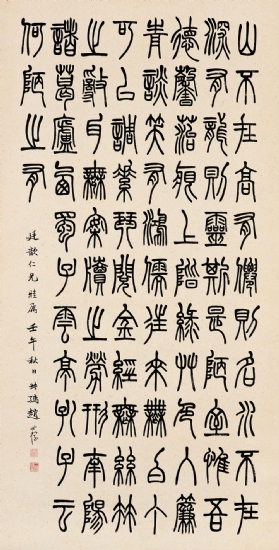 山不在高有僊則名水不在
深有龍則靈斯是陋室惟吾
德馨苔痕上階綠艸色入簾
青談笑有鴻儒往來無白丁
可以調素琴閱金經無絲竹
之亂耳無案牘之勞形南陽
諸葛廬西蜀子雲亭孔子云
何陋之有
仁兄雅屬 壬午秋日 叔孺趙時棡